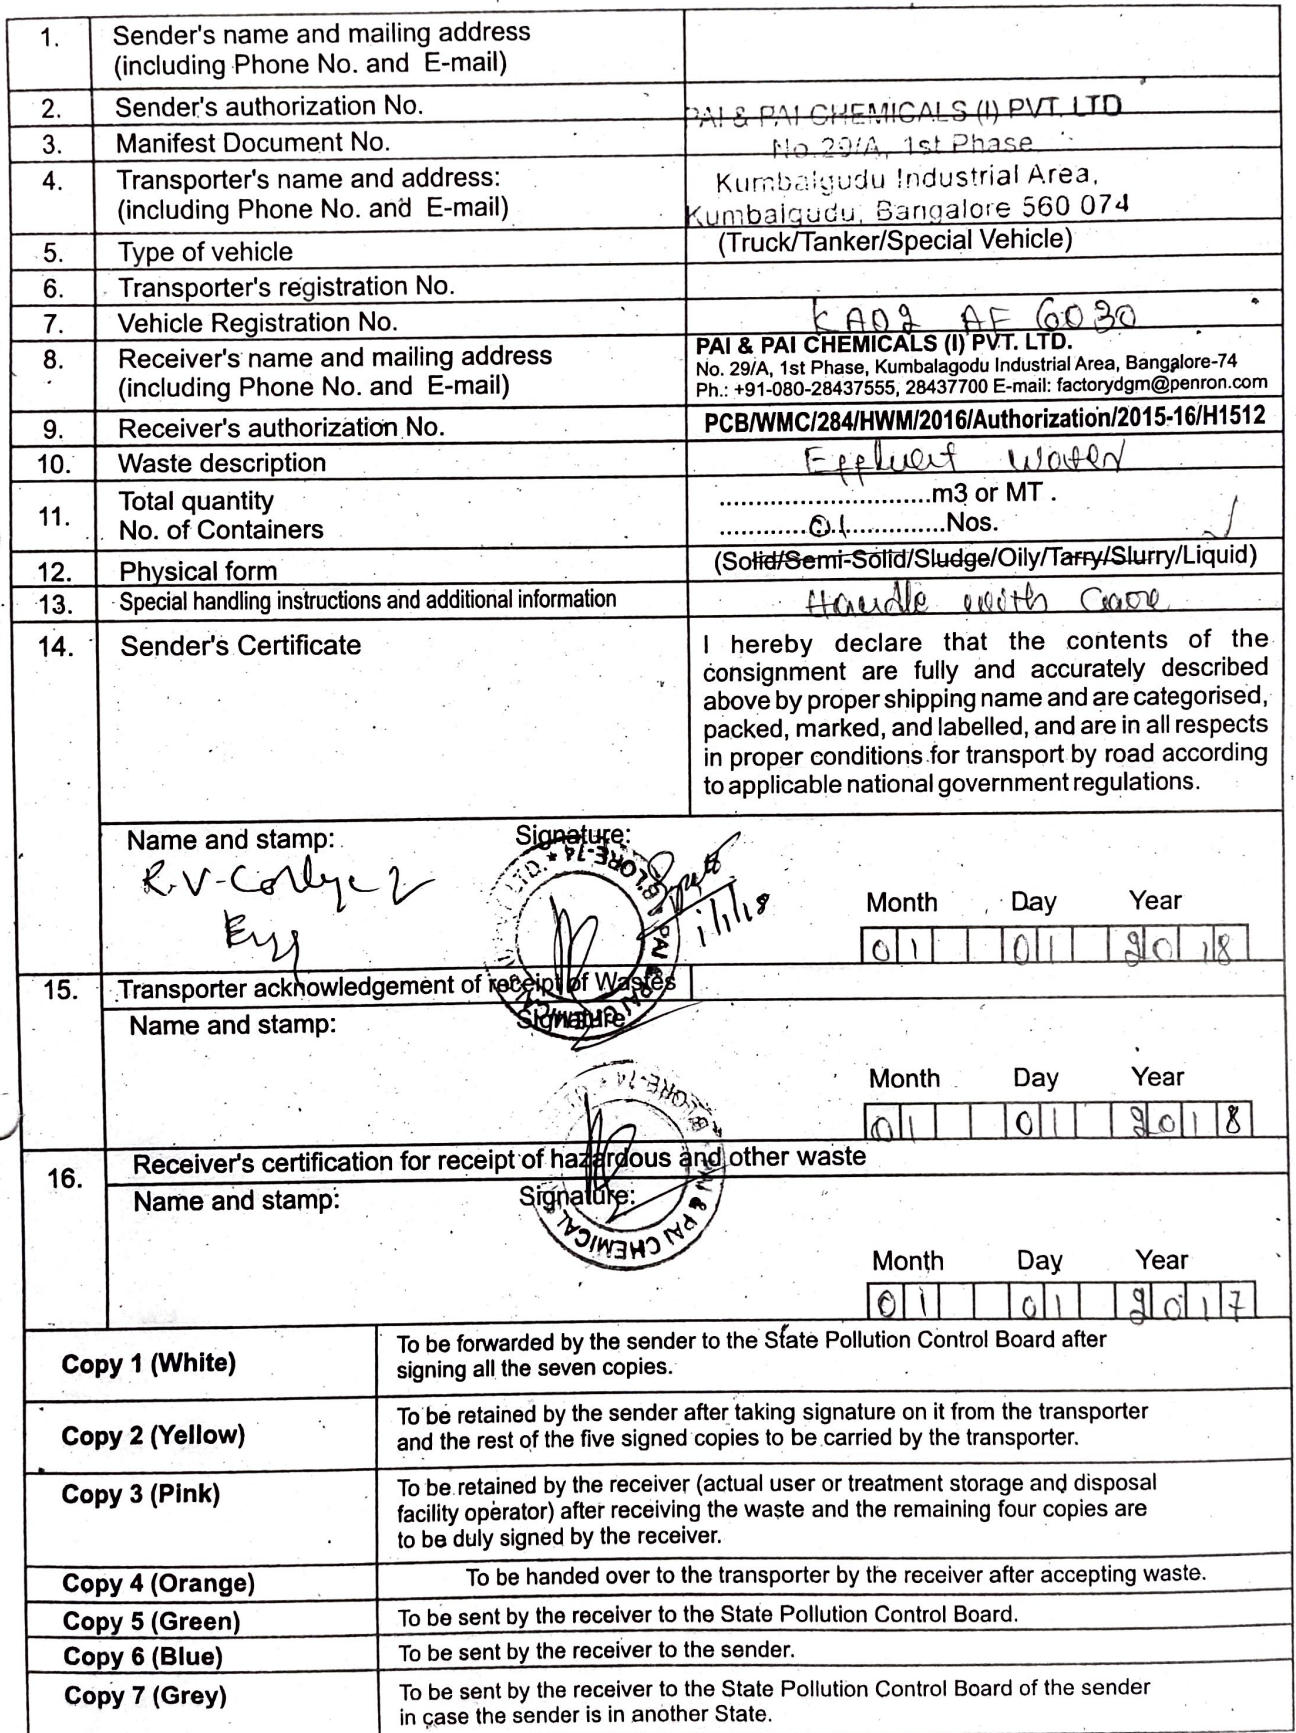 1. Sender's name and mailing address
(including Phone No. and E-mail)
2. Sender's authorization No.
PAI & PAI CHEMICALS (I) PVT. LTD
3. Manifest Document No.
No.29/A, 1st Phase
4. Transporter's name and address:
(including Phone No. and E-mail)
Kumbalgudu Industrial Area,
Kumbalgudu, Bangalore 560 074
5. Type of vehicle (Truck/Tanker/Special Vehicle)
6. Transporter's registration No.
7. Vehicle Registration No. KA02 AF 6030
8. Receiver's name and mailing address
(including Phone No. and E-mail)
PAI & PAI CHEMICALS (I) PVT. LTD.
No. 29/A, 1st Phase, Kumbalagodu Industrial Area, Bangalore-74
Ph.: +91-080-28437555, 28437700 E-mail: factorydgm@penron.com
9. Receiver's authorization No. PCB/WMC/284/HWM/2016/Authorization/2015-16/H1512
10. Waste description Effluent Water
11. Total quantity ..............................m3 or MT .
No. of Containers ............01...............Nos.
12. Physical form (Solid/Semi-Solid/Sludge/Oily/Tarry/Slurry/Liquid)
13. Special handling instructions and additional information Handle with Care
14. Sender's Certificate
I hereby declare that the contents of the
consignment are fully and accurately described
above by proper shipping name and are categorised,
packed, marked, and labelled, and are in all respects
in proper conditions for transport by road according
to applicable national government regulations.
Name and stamp: Signature:
R.V-College
Engg
1/1/18
Month Day Year
01 01 2018
15. Transporter acknowledgement of receipt of Wastes
Name and stamp: Signature
Month Day Year
01 01 2018
16. Receiver's certification for receipt of hazardous and other waste
Name and stamp: Signature:
& PAI CHEMICAL
Month Day Year
01 01 2017
Copy 1 (White) To be forwarded by the sender to the State Pollution Control Board after
signing all the seven copies.
Copy 2 (Yellow) To be retained by the sender after taking signature on it from the transporter
and the rest of the five signed copies to be carried by the transporter.
Copy 3 (Pink) To be retained by the receiver (actual user or treatment storage and disposal
facility operator) after receiving the waste and the remaining four copies are
to be duly signed by the receiver.
Copy 4 (Orange) To be handed over to the transporter by the receiver after accepting waste.
Copy 5 (Green) To be sent by the receiver to the State Pollution Control Board.
Copy 6 (Blue) To be sent by the receiver to the sender.
Copy 7 (Grey) To be sent by the receiver to the State Pollution Control Board of the sender
in case the sender is in another State.